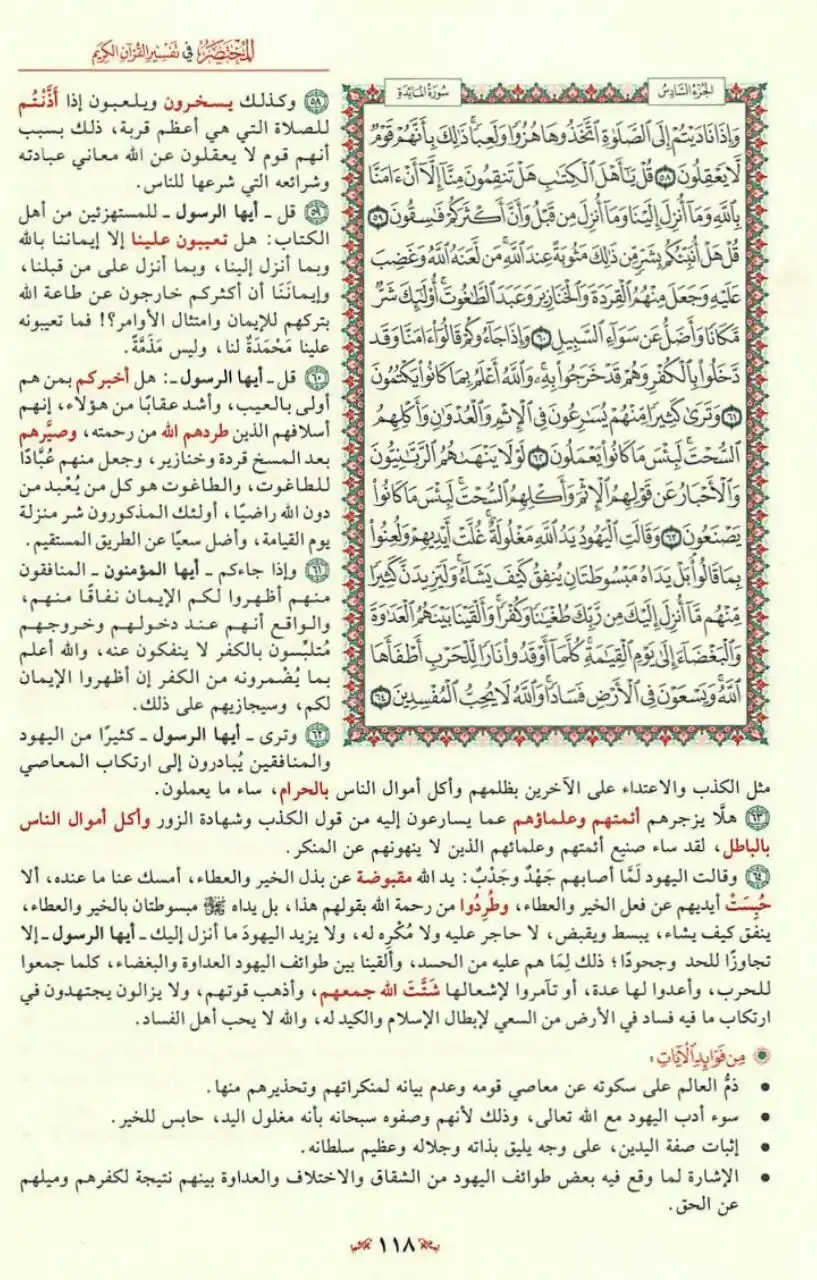 المختصر في تفسير القرآن الكريم
الجزء السادس
سورة المائدة
وَإِذَا نَادَيْتُمْ إِلَى ٱلصَّلَوٰةِ ٱتَّخَذُوهَا هُزُوًا وَلَعِبًا ذَٰلِكَ بِأَنَّهُمْ قَوْمٌ
لَّا يَعْقِلُونَ ٥٨ قُلْ يَٰٓأَهْلَ ٱلْكِتَٰبِ هَلْ تَنقِمُونَ مِنَّآ إِلَّآ أَنْ ءَامَنَّا
بِٱللَّهِ وَمَآ أُنزِلَ إِلَيْنَا وَمَآ أُنزِلَ مِن قَبْلُ وَأَنَّ أَكْثَرَكُمْ فَٰسِقُونَ ٥٩
قُلْ هَلْ أُنَبِّئُكُم بِشَرٍّ مِّن ذَٰلِكَ مَثُوبَةً عِندَ ٱللَّهِ مَن لَّعَنَهُ ٱللَّهُ وَغَضِبَ
عَلَيْهِ وَجَعَلَ مِنْهُمُ ٱلْقِرَدَةَ وَٱلْخَنَازِيرَ وَعَبَدَ ٱلطَّٰغُوتَ أُو۟لَٰٓئِكَ شَرٌّ
مَّكَانًا وَأَضَلُّ عَن سَوَآءِ ٱلسَّبِيلِ ٦٠ وَإِذَا جَآءُوكُمْ قَالُوٓا۟ ءَامَنَّا وَقَد
دَّخَلُوا۟ بِٱلْكُفْرِ وَهُمْ قَدْ خَرَجُوا۟ بِهِۦ وَٱللَّهُ أَعْلَمُ بِمَا كَانُوا۟ يَكْتُمُونَ
٦١ وَتَرَىٰ كَثِيرًا مِّنْهُمْ يُسَٰرِعُونَ فِى ٱلْإِثْمِ وَٱلْعُدْوَٰنِ وَأَكْلِهِمُ
ٱلسُّحْتَ لَبِئْسَ مَا كَانُوا۟ يَعْمَلُونَ ٦٢ لَوْلَا يَنْهَىٰهُمُ ٱلرَّبَّٰنِيُّونَ
وَٱلْأَحْبَارُ عَن قَوْلِهِمُ ٱلْإِثْمَ وَأَكْلِهِمُ ٱلسُّحْتَ لَبِئْسَ مَا كَانُوا۟
يَصْنَعُونَ ٦٣ وَقَالَتِ ٱلْيَهُودُ يَدُ ٱللَّهِ مَغْلُولَةٌ غُلَّتْ أَيْدِيهِمْ وَلُعِنُوا۟
بِمَا قَالُوا۟ بَلْ يَدَاهُ مَبْسُوطَتَانِ يُنفِقُ كَيْفَ يَشَآءُ وَلَيَزِيدَنَّ كَثِيرًا
مِّنْهُم مَّآ أُنزِلَ إِلَيْكَ مِن رَّبِّكَ طُغْيَٰنًا وَكُفْرًا وَأَلْقَيْنَا بَيْنَهُمُ ٱلْعَدَٰوَةَ
وَٱلْبَغْضَآءَ إِلَىٰ يَوْمِ ٱلْقِيَٰمَةِ كُلَّمَآ أَوْقَدُوا۟ نَارًا لِّلْحَرْبِ أَطْفَأَهَا
ٱللَّهُ وَيَسْعَوْنَ فِى ٱلْأَرْضِ فَسَادًا وَٱللَّهُ لَا يُحِبُّ ٱلْمُفْسِدِينَ ٦٤
٥٨ وكذلك يسخرون ويلعبون إذا أَذَّنْتُم
للصلاة التي هي أعظم قربة، ذلك بسبب
أنهم قوم لا يعقلون عن الله معاني عبادته
وشرائعه التي شرعها للناس.
٥٩ قل ـ أيها الرسول ـ للمستهزئين من أهل
الكتاب: هل تعيبون علينا إلا إيماننا بالله
وبما أنزل إلينا، وبما أنزل على من قبلنا،
وإيماننَا أن أكثركم خارجون عن طاعة الله
بتركهم للإيمان وامتثال الأوامر؟! فما تعيبونه
علينا مَحْمَدَةٌ لنا، وليس مَذَمَّةً.
٦٠ قل ـ أيها الرسول ـ: هل أخبركم بمن هم
أولى بالعيب، وأشد عقابًا من هؤلاء، إنهم
أسلافهم الذين طردهم الله من رحمته، وصيَّرهم
بعد المسخ قردة وخنازير، وجعل منهم عُبَّادًا
للطاغوت، والطاغوت هو كل من يُعْبد من
دون الله راضيًا، أولئك المذكورون شر منزلة
يوم القيامة، وأضل سعيًا عن الطريق المستقيم.
٦١ وإذا جاءكم ـ أيها المؤمنون ـ المنافقون
منهم أظهروا لكم الإيمان نفاقًا منهم،
والواقع أنهم عند دخولهم وخروجهم
مُتلبِّسون بالكفر لا ينفكون عنه، والله أعلم
بما يُضْمرونه من الكفر إن أظهروا الإيمان
لكم، وسيجازيهم على ذلك.
٦٢ وترى ـ أيها الرسول ـ كثيرًا من اليهود
والمنافقين يُبادرون إلى ارتكاب المعاصي
مثل الكذب والاعتداء على الآخرين بظلمهم وأكل أموال الناس بالحرام، ساء ما يعملون.
٦٣ هلَّا يزجرهم أئمتهم وعلماؤهم عما يسارعون إليه من قول الكذب وشهادة الزور وأكل أموال الناس
بالباطل، لقد ساء صنيع أئمتهم وعلمائهم الذين لا ينهونهم عن المنكر.
٦٤ وقالت اليهود لَمَّا أصابهم جَهْدٌ وجَدْبٌ: يد الله مقبوضة عن بذل الخير والعطاء، أمسك عنا ما عنده، ألا
حُبِسَتْ أيديهم عن فعل الخير والعطاء، وطُرِدُوا من رحمة الله بقولهم هذا، بل يداه ﷻ مبسوطتان بالخير والعطاء،
ينفق كيف يشاء، يبسط ويقبض، لا حاجر عليه ولا مُكْرِه له، ولا يزيد اليهودَ ما أنزل إليك ـ أيها الرسول ـ إلا
تجاوزًا للحد وجحودًا؛ ذلك لِمَا هم عليه من الحسد، وألقينا بين طوائف اليهود العداوة والبغضاء، كلما جمعوا
للحرب، وأعدوا لها عدة، أو تآمروا لإشعالها شَتَّتَ الله جمعهم، وأذهب قوتهم، ولا يزالون يجتهدون في
ارتكاب ما فيه فساد في الأرض من السعي لإبطال الإسلام والكيد له، والله لا يحب أهل الفساد.
من فوائد الآيات:
• ذمُّ العالم على سكوته عن معاصي قومه وعدم بيانه لمنكراتهم وتحذيرهم منها.
• سوء أدب اليهود مع الله تعالى، وذلك لأنهم وصفوه سبحانه بأنه مغلول اليد، حابس للخير.
• إثبات صفة اليدين، على وجه يليق بذاته وجلاله وعظيم سلطانه.
• الإشارة لما وقع فيه بعض طوائف اليهود من الشقاق والاختلاف والعداوة بينهم نتيجة لكفرهم وميلهم
عن الحق.
١١٨